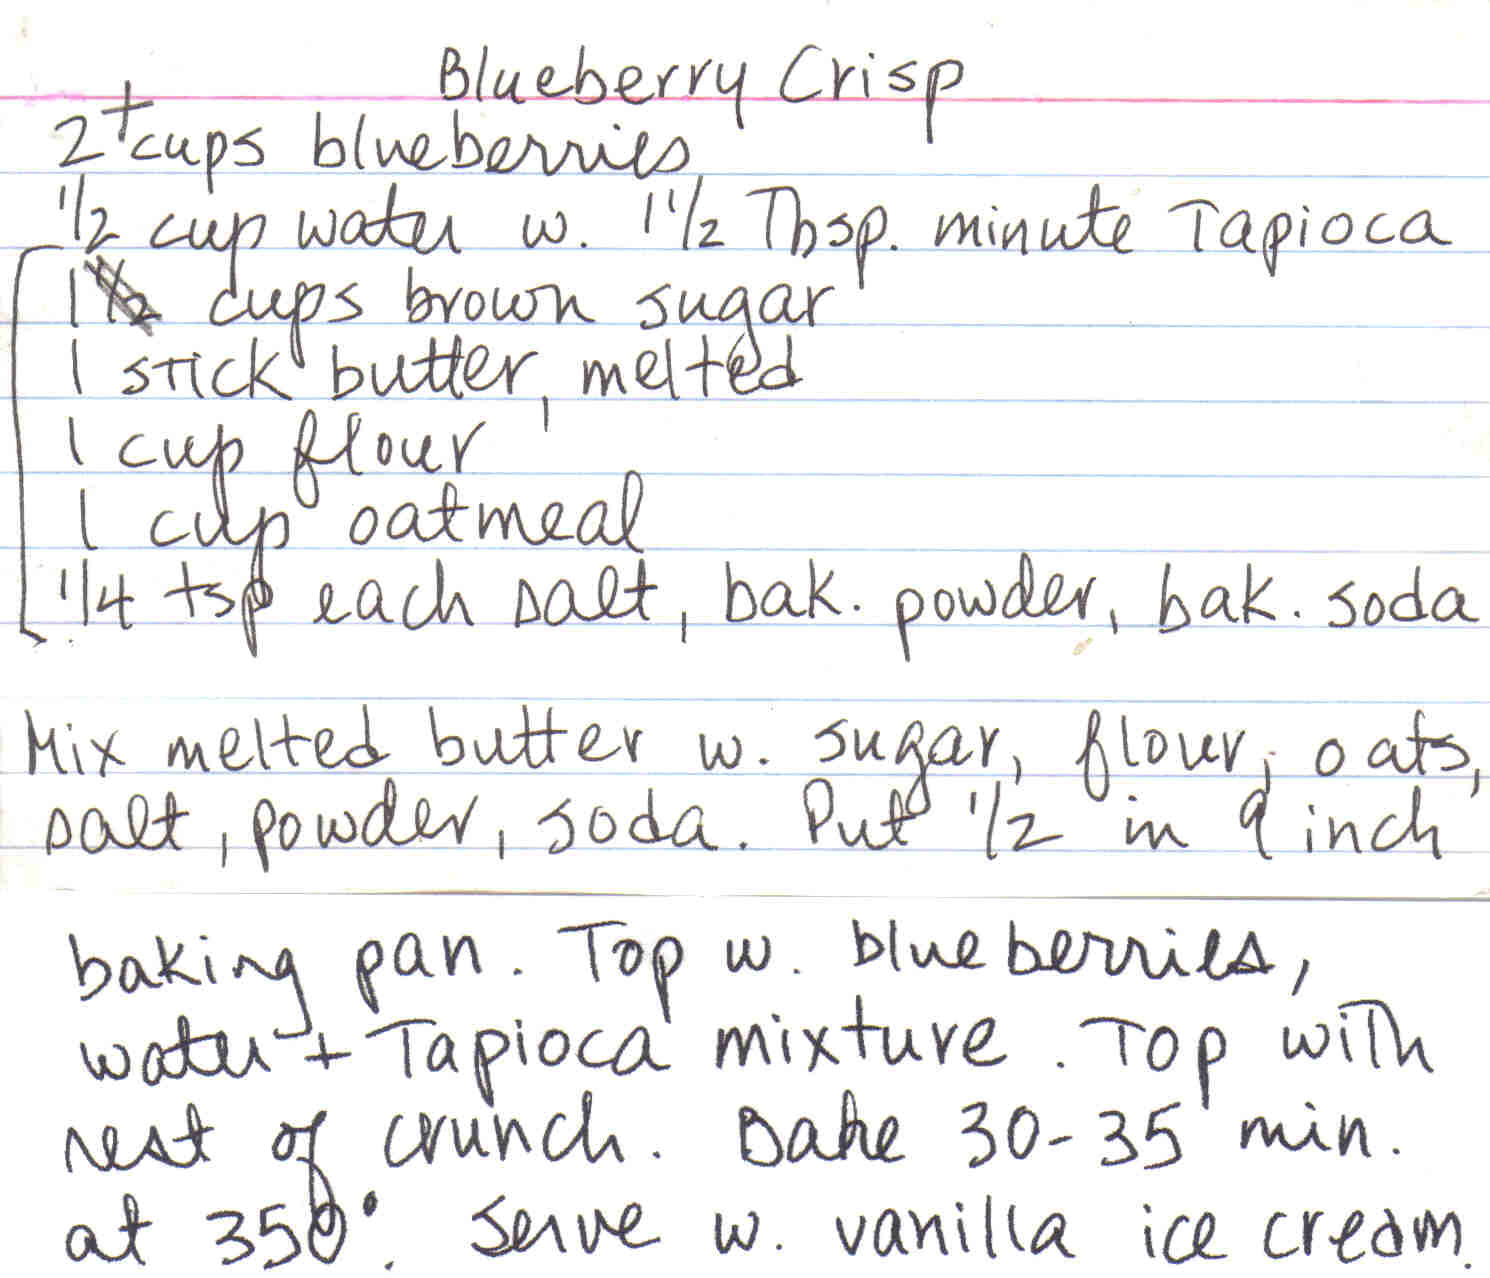 Blueberry Crisp
2+ cups blueberries
1/2 cup water w. 1 1/2 Tbsp. minute Tapioca
1 cups brown sugar
1 stick butter, melted
1 cup flour
1 cup oatmeal
1/4 tsp each salt, bak. powder, bak. soda
Mix melted butter w. sugar, flour, oats,
salt, powder, soda. Put 1/2 in 9 inch
baking pan. Top w. blueberries,
water + Tapioca mixture. Top with
rest of crunch. Bake 30-35 min.
at 350°. Serve w. vanilla ice cream.